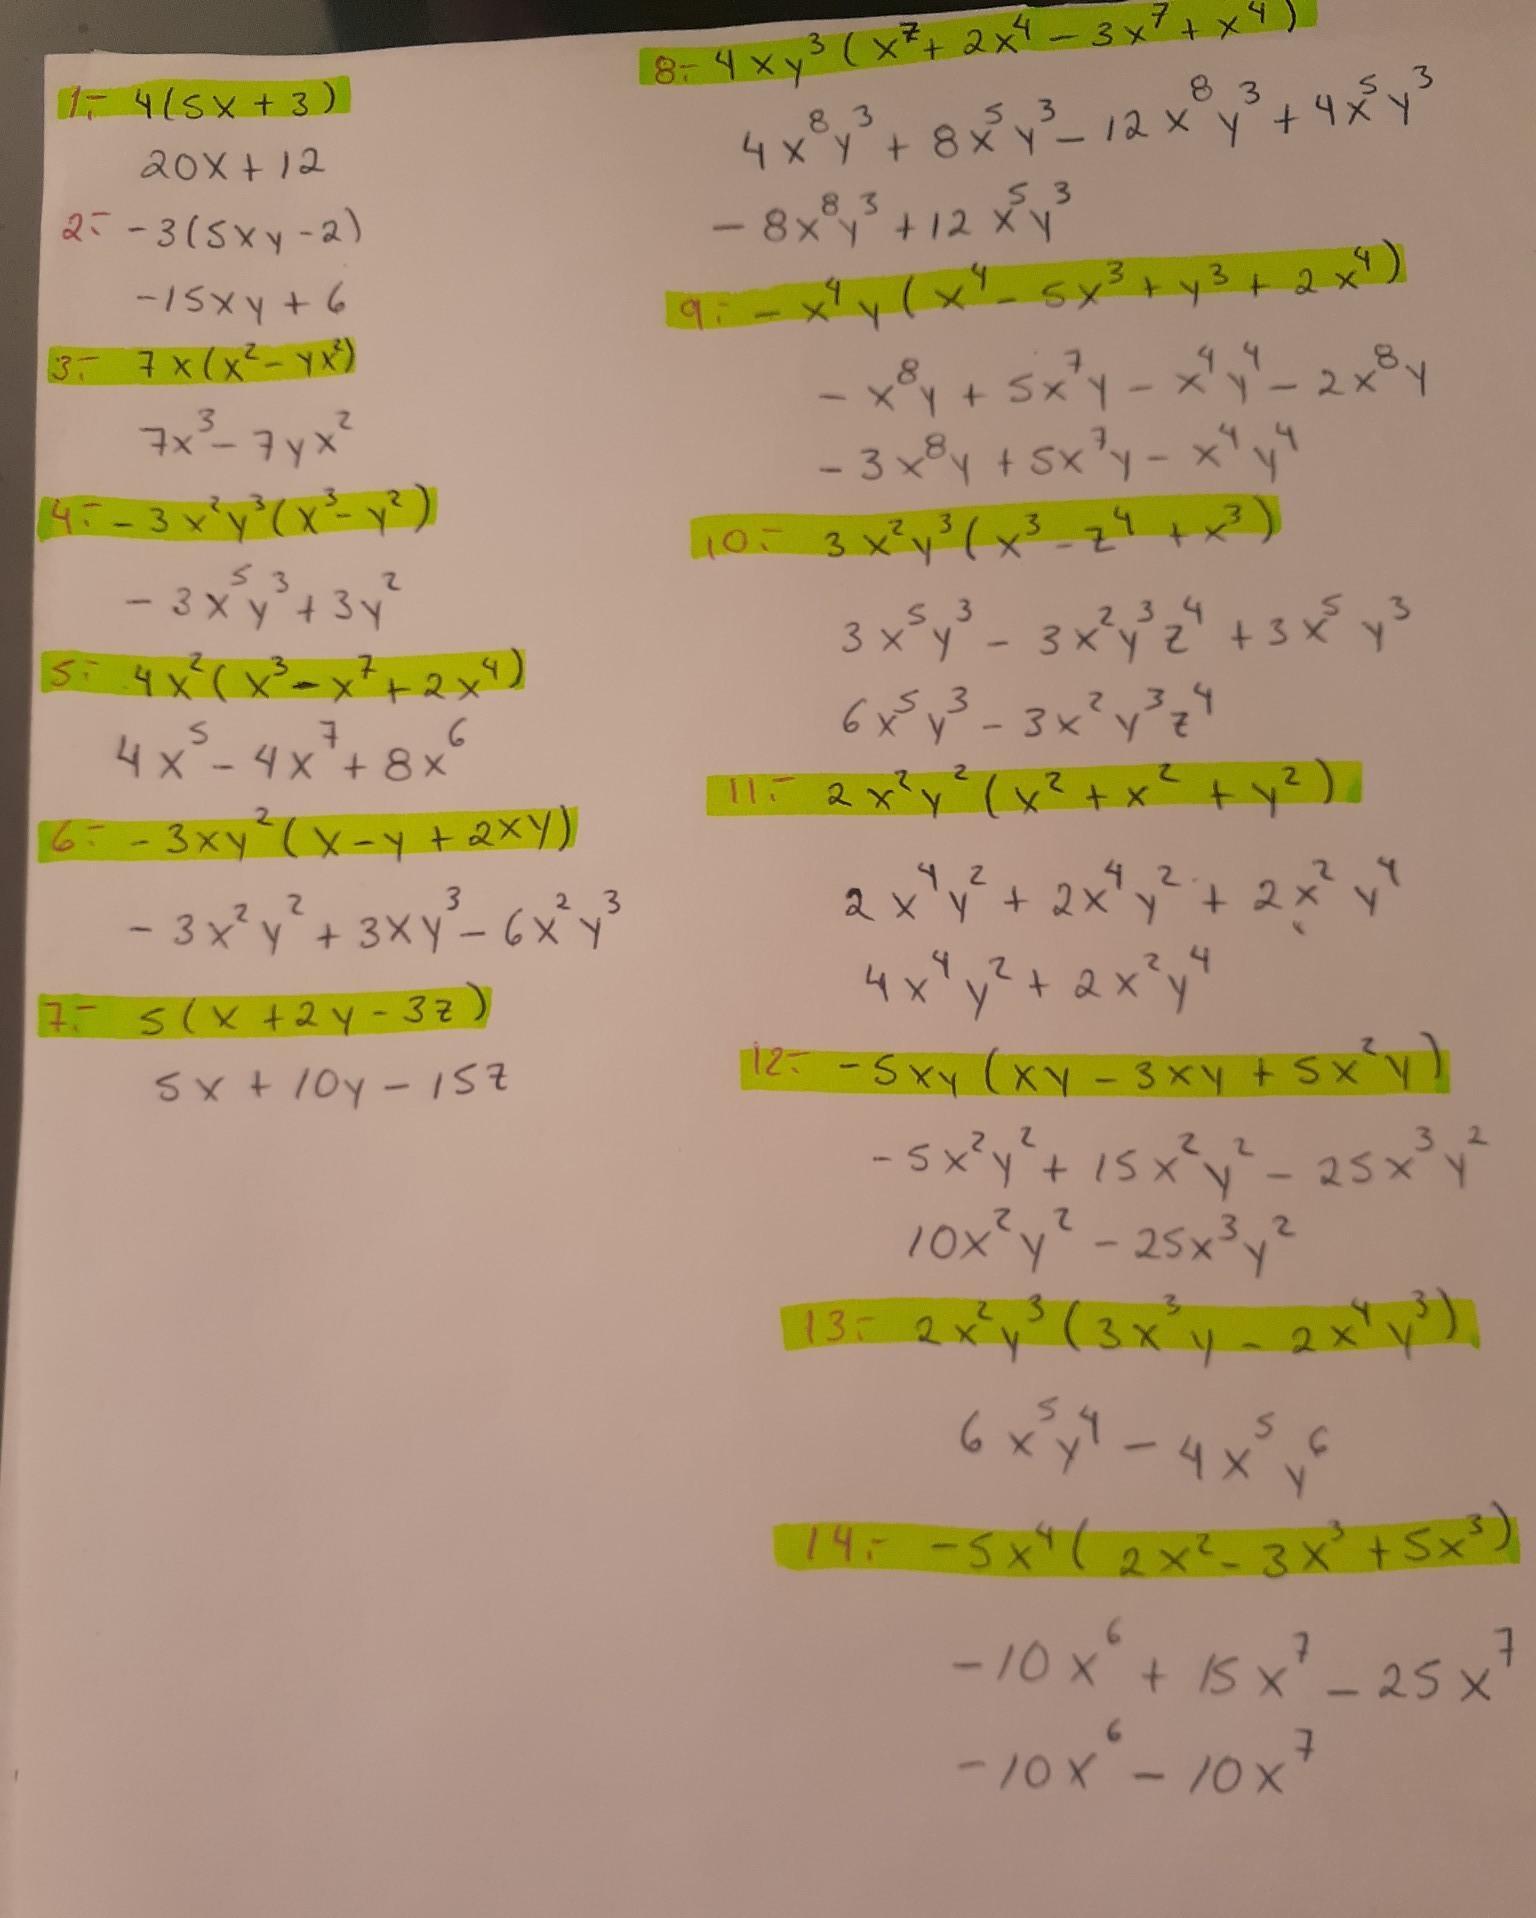 1.- 4(5x + 3)
20x + 12
2.- -3(5xy - 2)
-15xy + 6
3.- 7x(x² - yx²)
7x³ - 7yx²
4.- -3x²y³(x³ - y²)
-3x⁵y³ + 3y²
5.- 4x²(x³ - x⁷ + 2x⁴)
4x⁵ - 4x⁷ + 8x⁶
6.- -3xy²(x - y + 2xy)
-3x²y² + 3xy³ - 6x²y³
7.- 5(x + 2y - 3z)
5x + 10y - 15z
8.- 4xy³(x⁷ + 2x⁴ - 3x⁷ + x⁴)
4x⁸y³ + 8x⁵y³ - 12x⁸y³ + 4x⁵y³
-8x⁸y³ + 12x⁵y³
9.- -x⁴y(x⁴ - 5x³ + y³ + 2x⁴)
-x⁸y + 5x⁷y - x⁴y⁴ - 2x⁸y
-3x⁸y + 5x⁷y - x⁴y⁴
10.- 3x²y³(x³ - z⁴ + x³)
3x⁵y³ - 3x²y³z⁴ + 3x⁵y³
6x⁵y³ - 3x²y³z⁴
11.- 2x²y²(x² + x² + y²)
2x⁴y² + 2x⁴y² + 2x²y⁴
4x⁴y² + 2x²y⁴
12.- -5xy(xy - 3xy + 5x²y)
-5x²y² + 15x²y² - 25x³y²
10x²y² - 25x³y²
13.- 2x²y³(3x³y - 2x⁴y³)
6x⁵y⁴ - 4x⁵y⁶
14.- -5x⁴(2x² - 3x³ + 5x³)
-10x⁶ + 15x⁷ - 25x⁷
-10x⁶ - 10x⁷